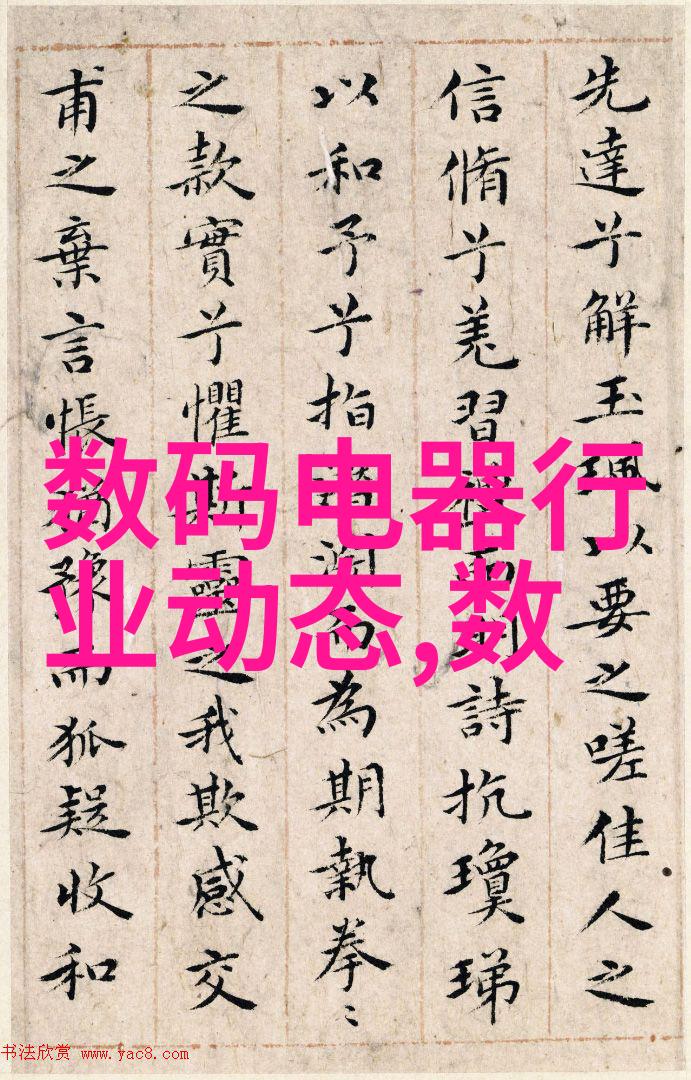 先達兮解玉珮以要之嗟佳人之
信脩兮羌習禮而明詩抗瓊珶
以和予兮指潛淵而為期執拳〻
之款實兮懼斯靈之我欺感交
甫之棄言悵猶豫而狐疑收和
数码电器行
业动态,数
书法欣赏 www.yac8.com